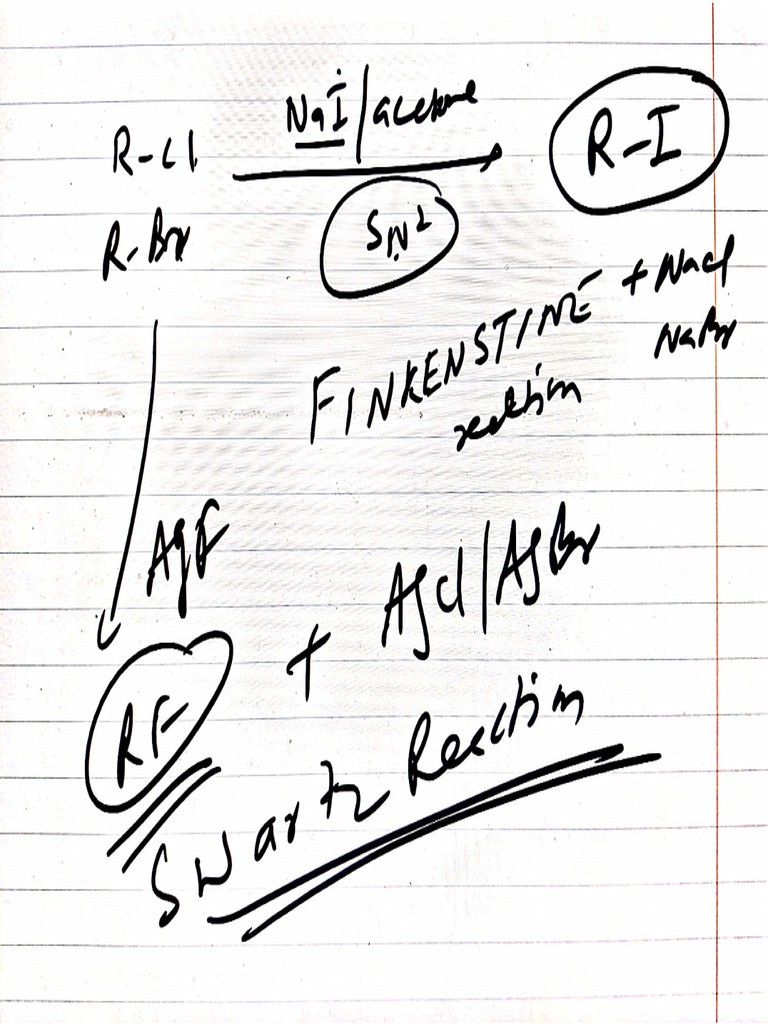 NaI/acetone
R-Cl R-I
SN²
R-Br
+ NaCl
FINKENSTINE
NaBr
reaction
AgF
+ AgCl/AgBr
RF
Swartz Reaction